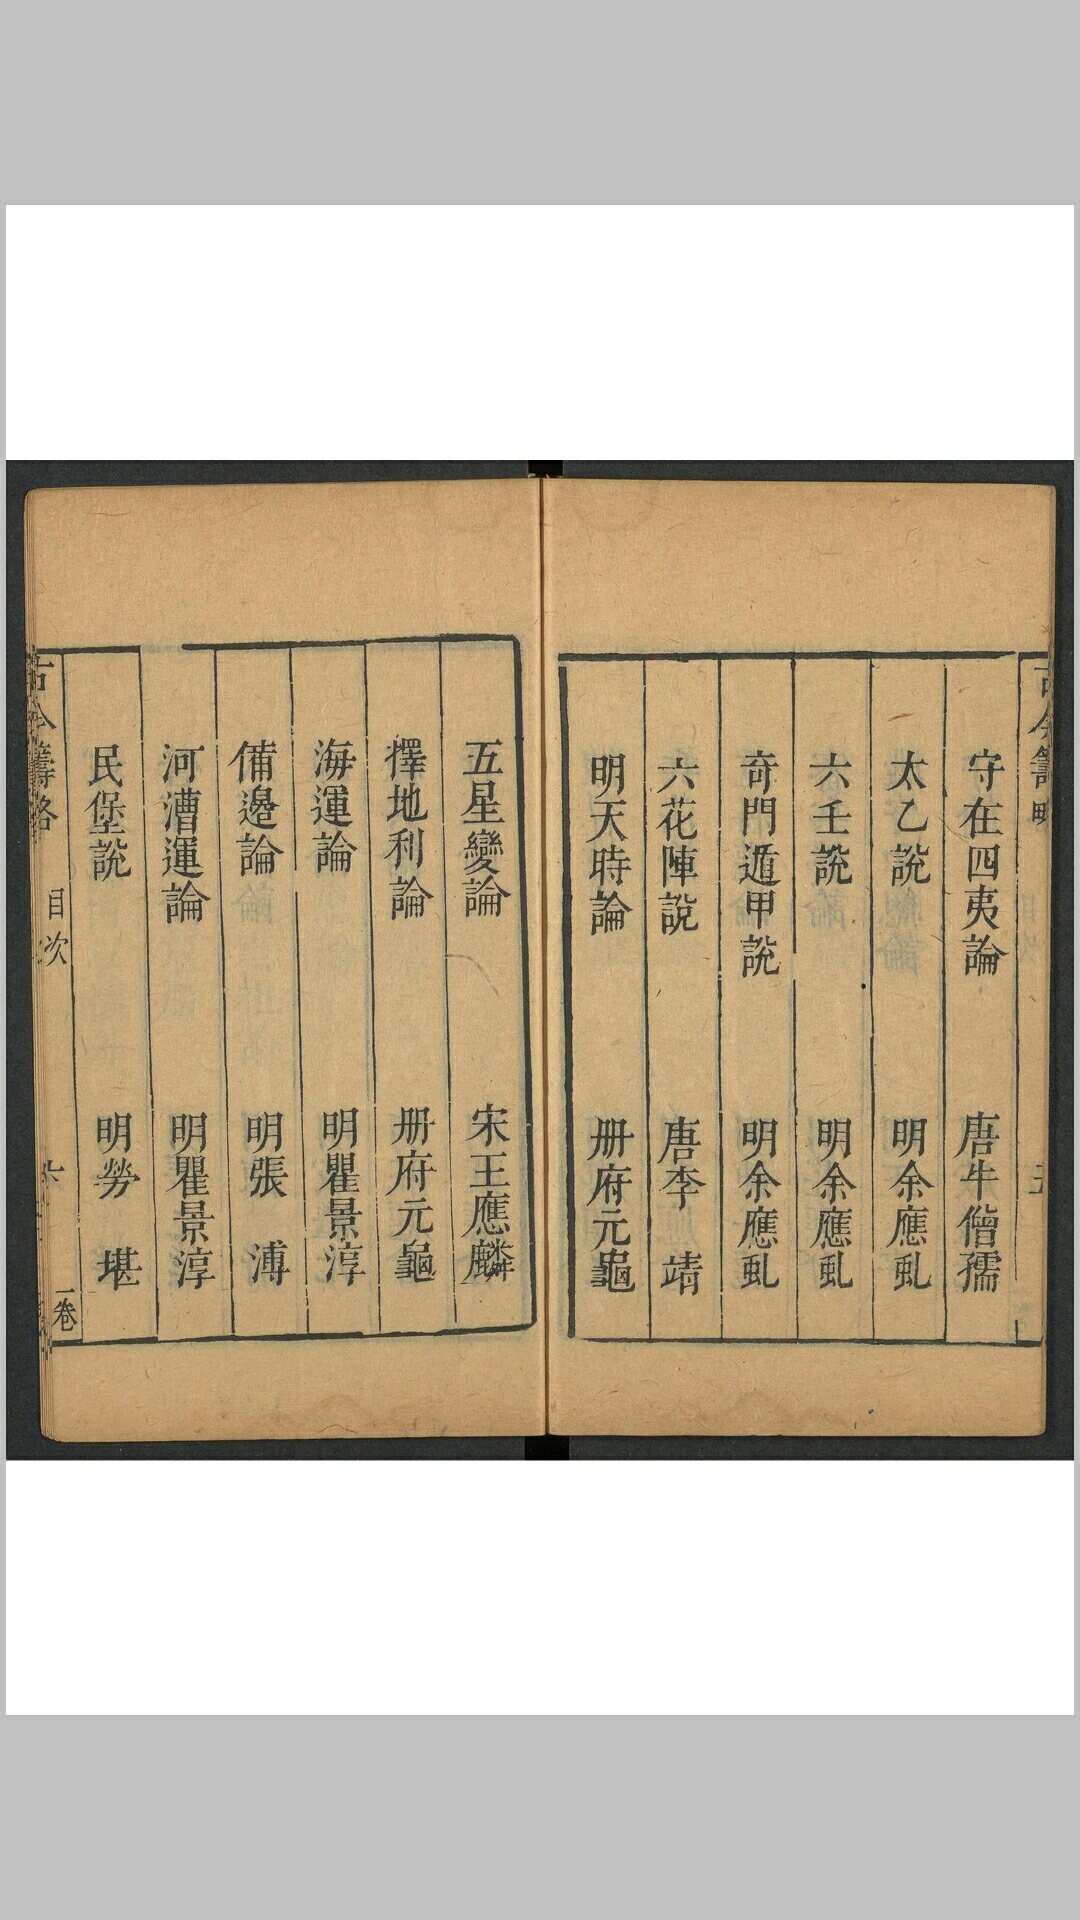 古今籌畧
守在四夷論 唐牛僧孺
太乙說 明余應虬
六壬說 明余應虬
奇門遁甲說 明余應虬
六花陣說 唐李靖
明天時論 冊府元龜
五星變論 宋王應麟
擇地利論 冊府元龜
海運論 明瞿景淳
備邊論 明張溥
河漕運論 明瞿景淳
民堡說 明勞堪
古今籌略 目次 六 一卷